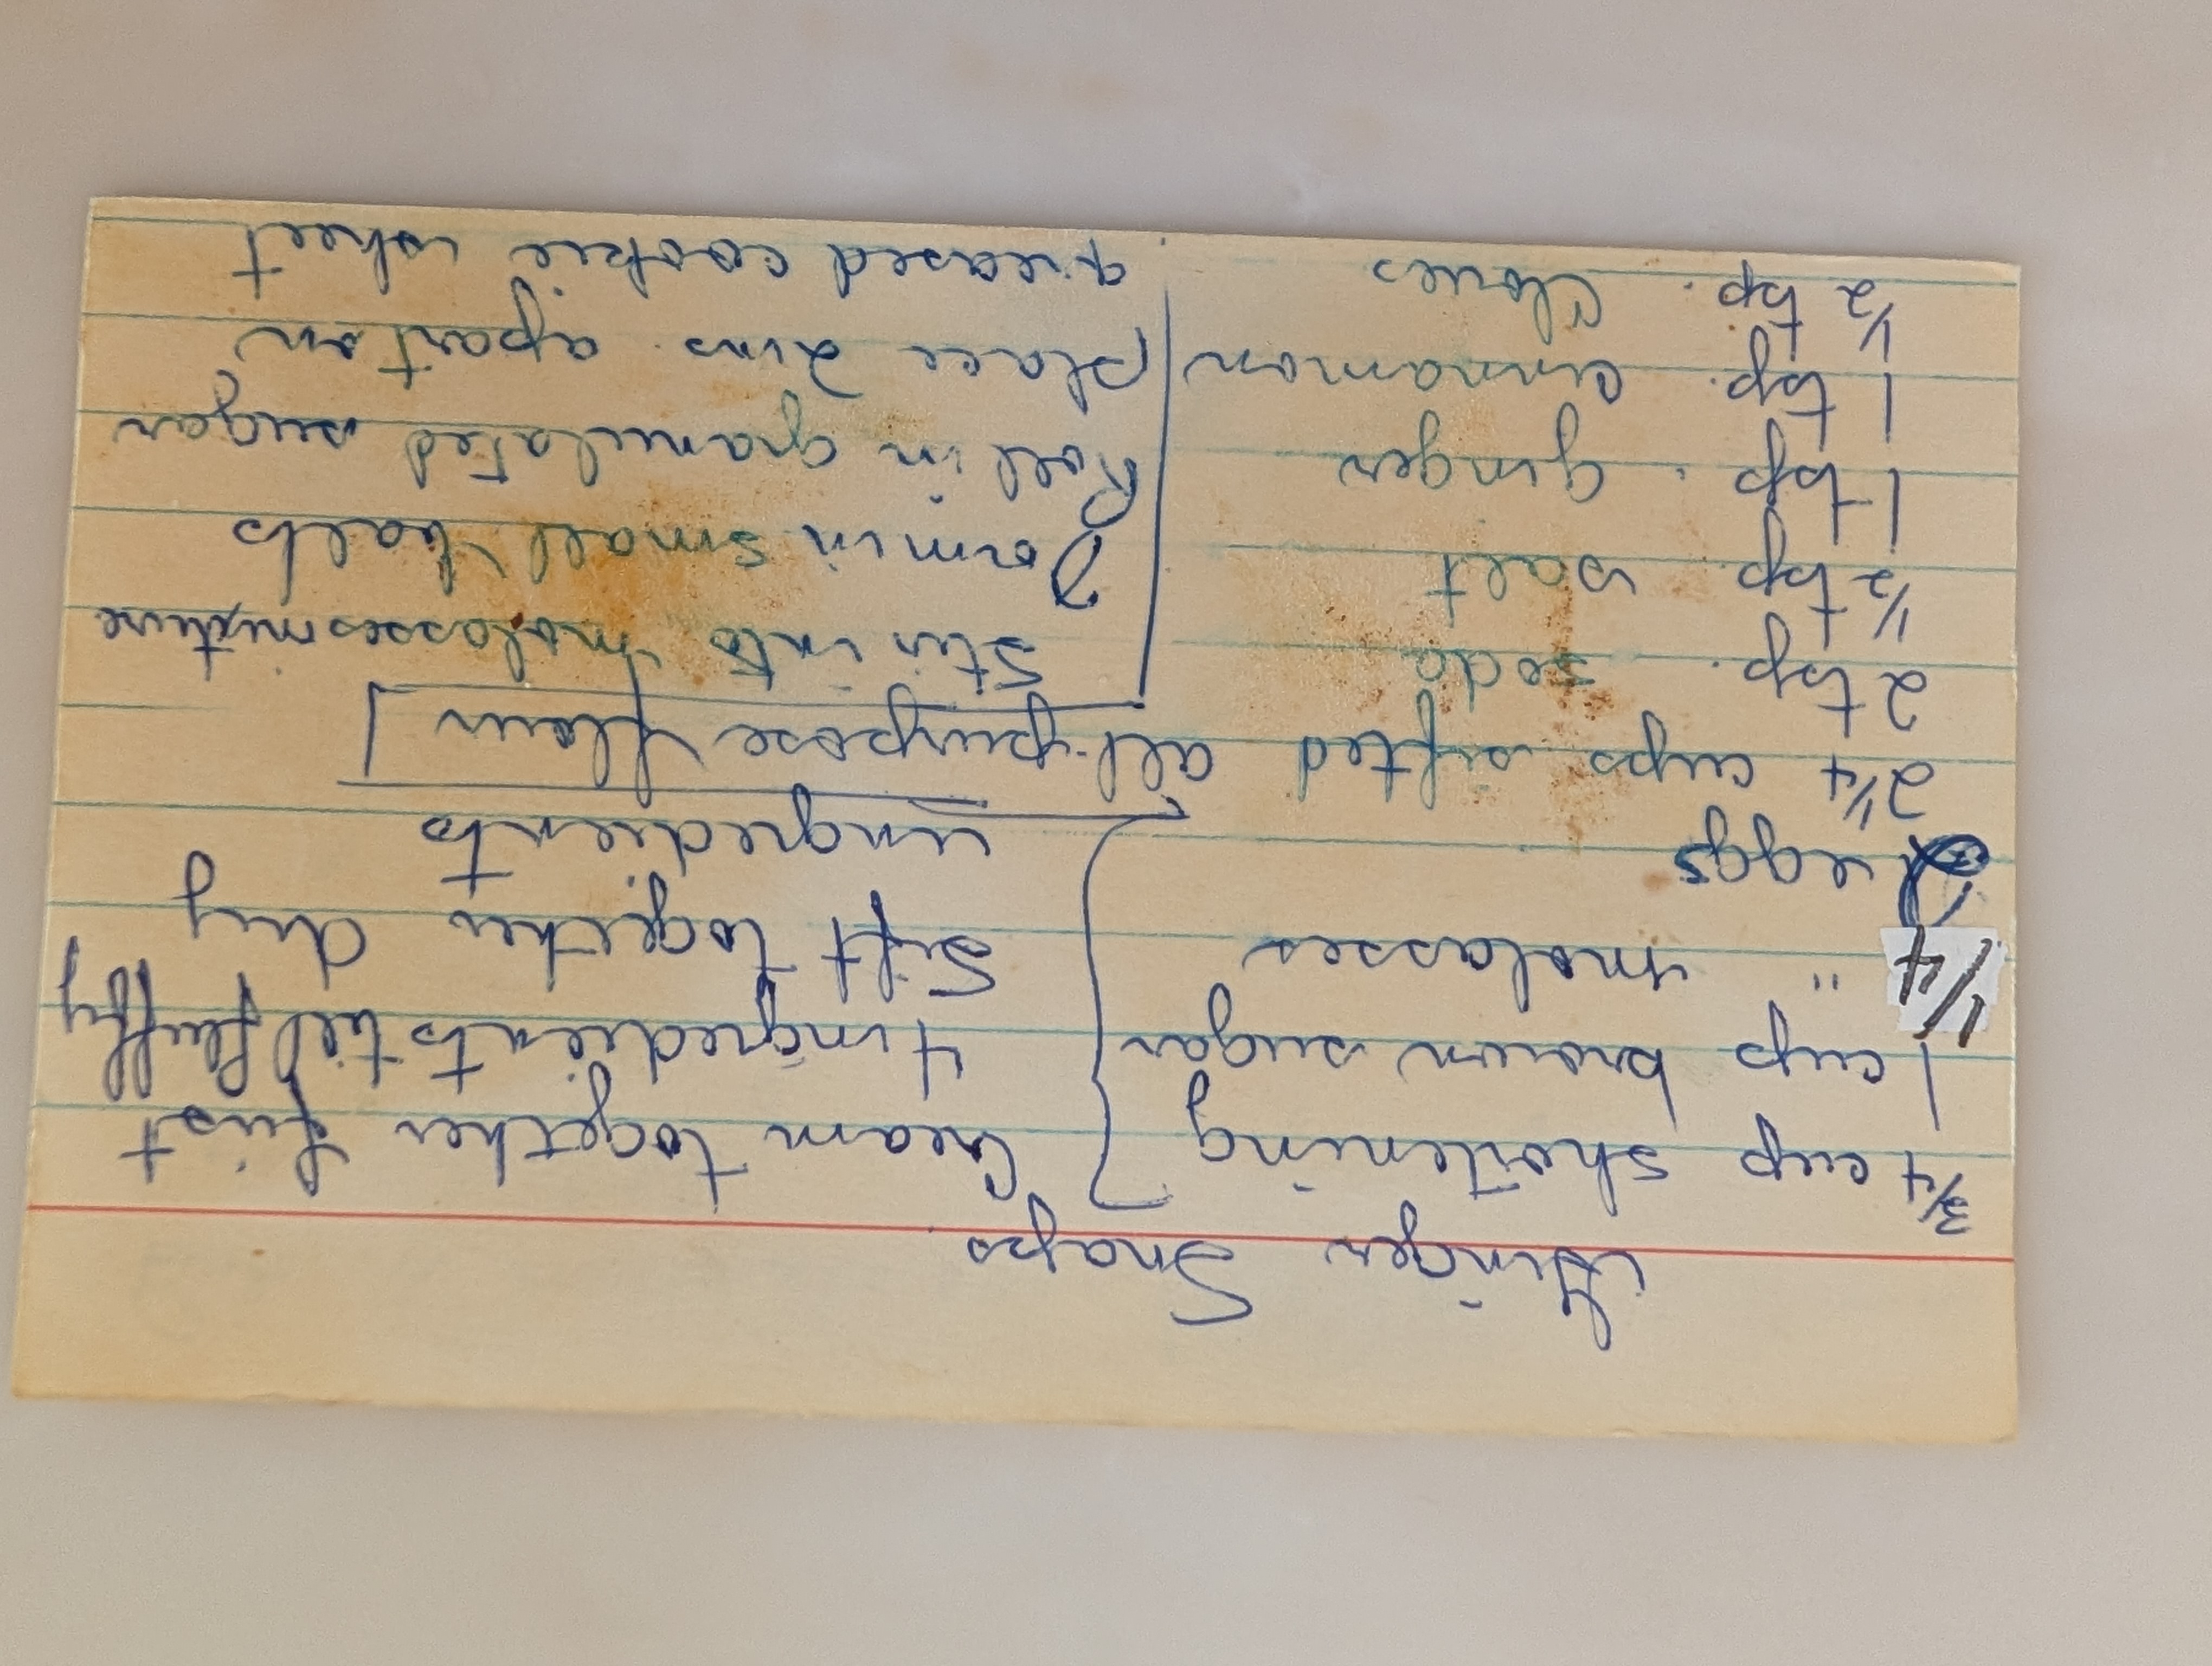 Ginger Snaps
3/4 cup shortening
1 cup brown sugar
1/4 " molasses
eggs
Cream together first
4 ingredients til fluffy
Sift together dry
ingredients
2 1/4 cups sifted all-purpose flour
2 tsp. soda
1/2 tsp. salt
1 tsp. ginger
1 tsp. cinnamon
1/2 tsp. cloves
Stir into molasses mixture
Form in small balls
Roll in granulated sugar
place 2 ins. apart on
greased cookie sheet